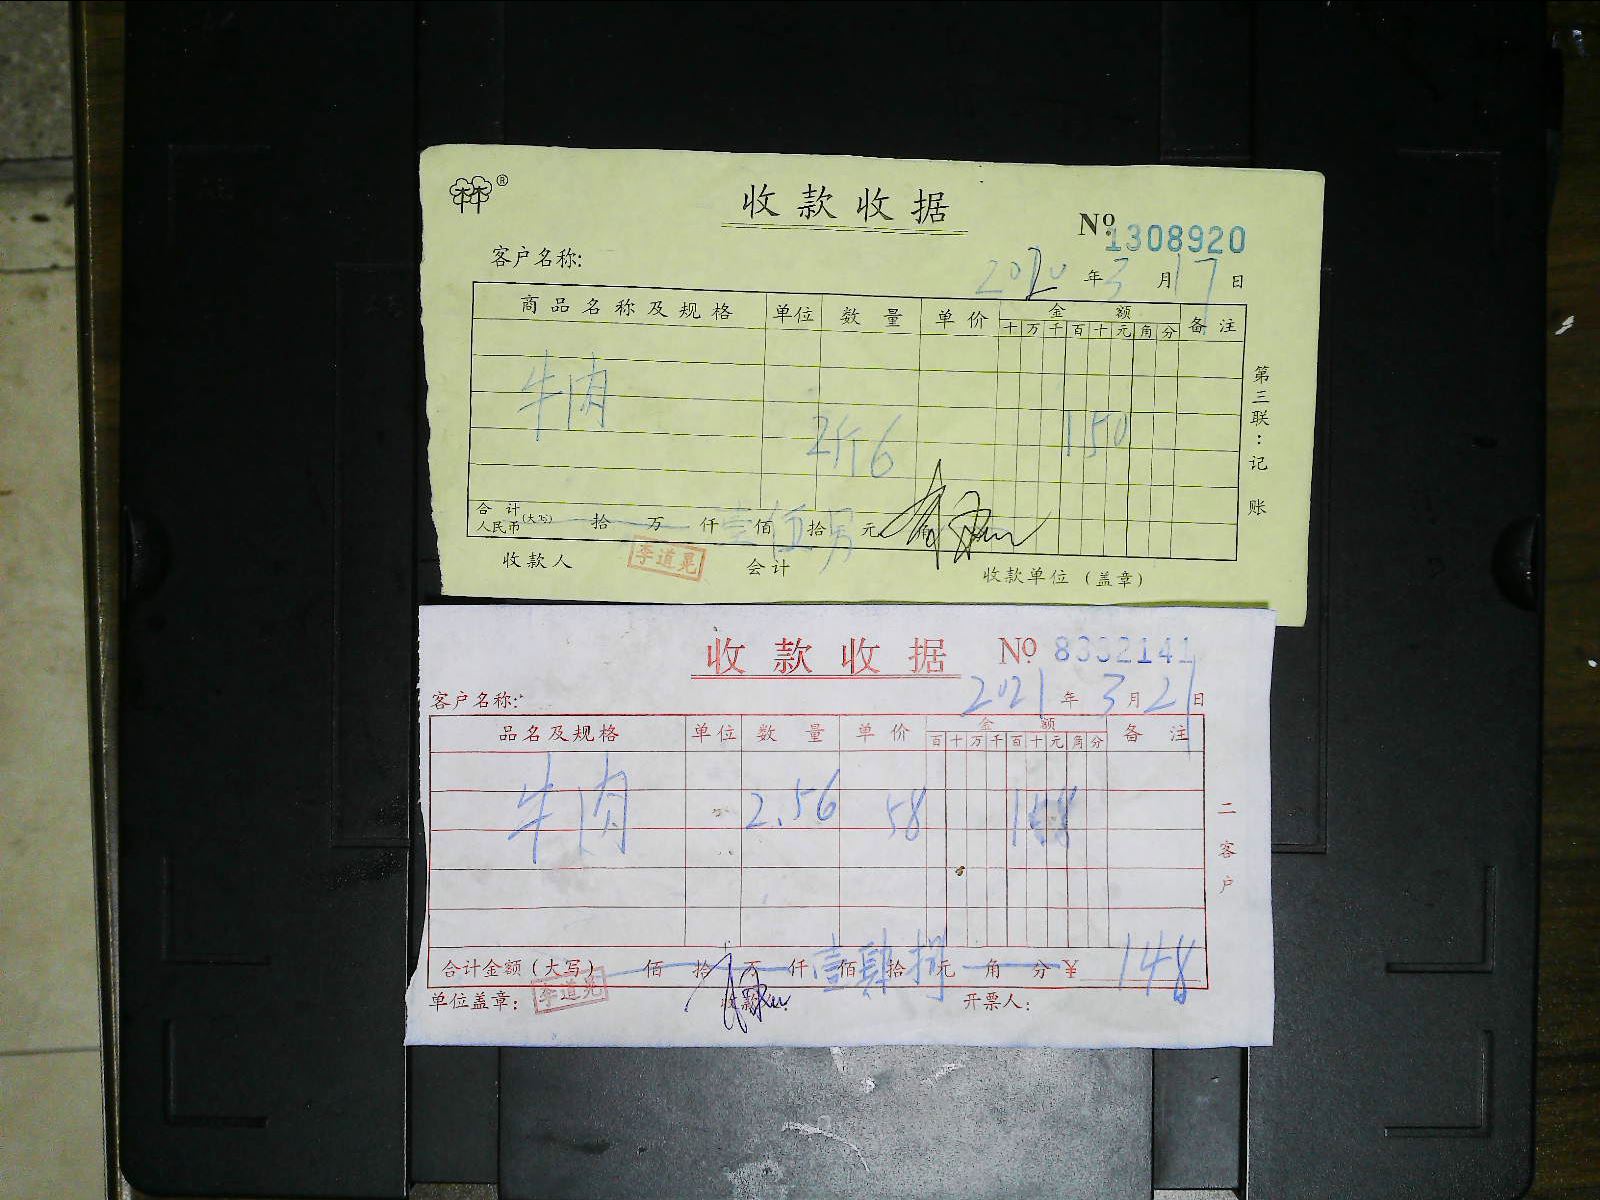 林®
收款收据
№ 1308920
客户名称: 2020 年 3 月 17 日
商品名称及规格 单位 数量 单价 金额 备注
十 万 千 百 十 元 角 分
牛肉 2斤6 150
合计人民币(大写) 拾 万 仟 壹 佰 伍 拾 元 角
收款人 李道晃 会计 收款单位(盖章)
第三联:记账
收款收据 № 8332141
客户名称: 2021 年 3 月 21 日
品名及规格 单位 数量 单价 金额 备注
百 十 万 千 百 十 元 角 分
牛肉 2.56 58
合计金额(大写) 佰 拾 万 仟 壹 佰 肆 拾 捌 元 角 分 ¥ 148
单位盖章: 李道晃 收款人: 开票人:
二客户